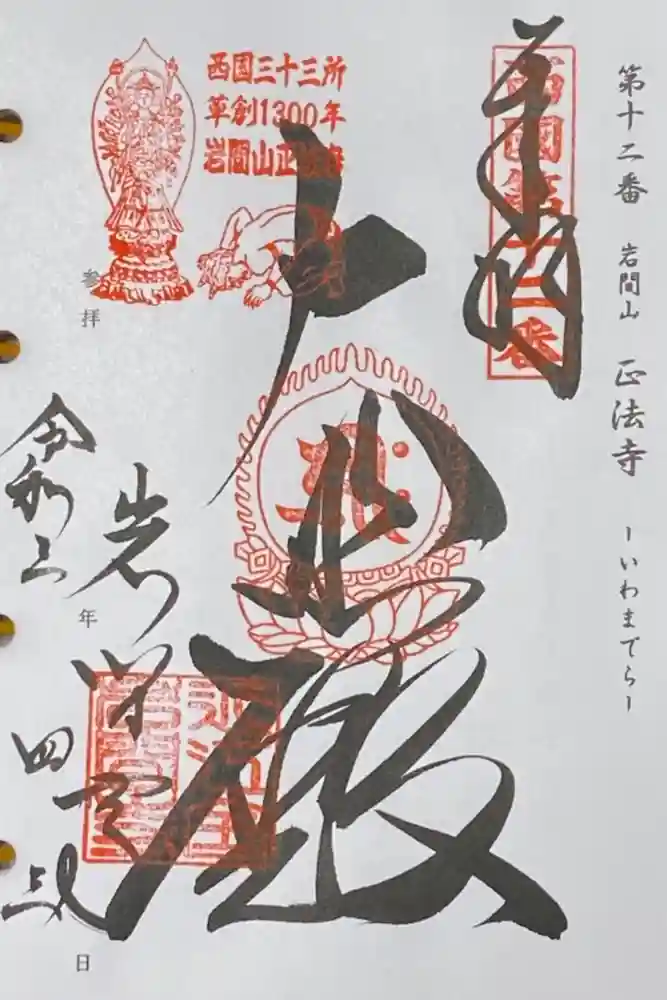 第十二番 岩間山 正法寺 ーいわまでらー
西國第十二番
奉拝
西国三十三所
草創1300年
岩間山正法寺
大悲殿
岩間寺
参拝
令和三年
四
日